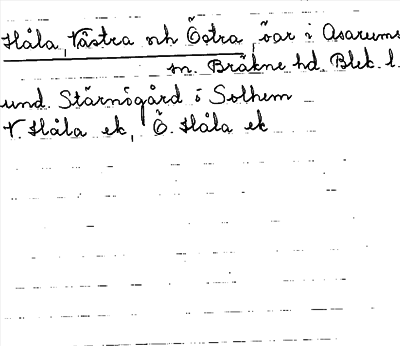 Håla, Västra och Östra, öar i Asarums
sn. Bräkne hd. Blek. l.
und. Stärnögård ö Solhem
V. Håla ek, Ö. Håla ek